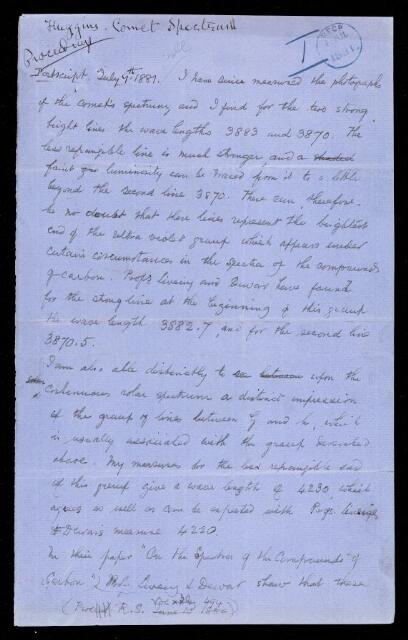 Huggins. Comet Spectrum
Proceedings
Postscript, July 9th 1881. I have since measured the photographs
of the comet's spectrum, and I find for the two strong
bright lines the wave lengths 3883 and 3870. The
less refrangible line is much stronger, and a shaded
faint luminosity can be traced from it to a little
beyond the second line 3870. There can, therefore,
be no doubt that these lines represent the brightest
end of the ultra violet group which appears under
certain circumstances in the spectra of the compounds
of carbon. Profs Liveing and Dewar have found
for the strong line at the beginning of this group
the wave length 3882.7, and for the second line
3870.5.
I am also able distinctly to see between upon the
continuous solar spectrum a distinct impression
of the group of lines between G and h, which
is usually associated with the group described
above. My measures for the less refrangible end
of this group give a wave length of 4230, which
agrees as well as can be expected with Profs Liveing
& Dewar's measure 4220.
In their paper "On the Spectra of the Compounds of
Carbon" Liveing & Dewar show that these
(Proc R.S. 494